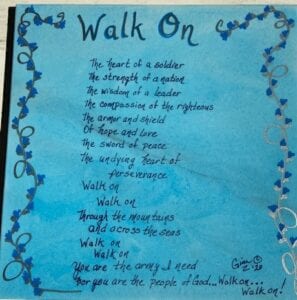 Walk On
The heart of a soldier
The strength of a nation
The wisdom of a leader
The compassion of the righteous
The armor and shield
Of hope and love
The sword of peace
The undying heart of
perseverance
Walk on
Walk on
Through the mountains
and across the seas
Walk on
Walk on
You are the army I need
For you are the people of God...Walk on...
Walk on!
Gina ©